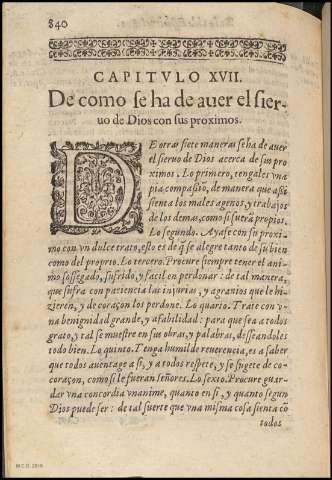 840
CAPITVLO XVII.
De como se ha de auer el sier-
uo de Dios con sus proximos.
DE otras siete maneras se ha de auer
el sieruo de Dios acerca de sus pro
ximos. Lo primero, tengales vna
pia compassiō, de manera que assi
sienta los males agenos, y trabajos
de los demas, como si fuerā propios.
Lo segundo. Ayase con su proxi-
mo con vn dulce trato, esto es q̃ se alegre tanto de su bien
como del proprio. Lo tercero. Procure siempre tener el ani
mo sossegado, sufrido, y facil en perdonar: de tal manera,
que sufra con paciencia las injurias, y agrauios que le hi-
zieren, y de coraçon los perdone. Lo quarto. Trate con v-
na benignidad grande, y afabilidad: para que sea a todos
grato, y tal se muestre en sus obras, y palabras, desseandoles
todo bien. Lo quinto. Tenga humilde reuerencia, es a saber
que todos auentage a si, y a todos respete, y se sugete de co-
coraçon, como si le fueran señores. Lo sexto. Procure guar-
dar vna concordia vnanime, quanto en si, y quanto segun
Dios puede ser: de tal suerte que vna misma cosa sienta cō
todos